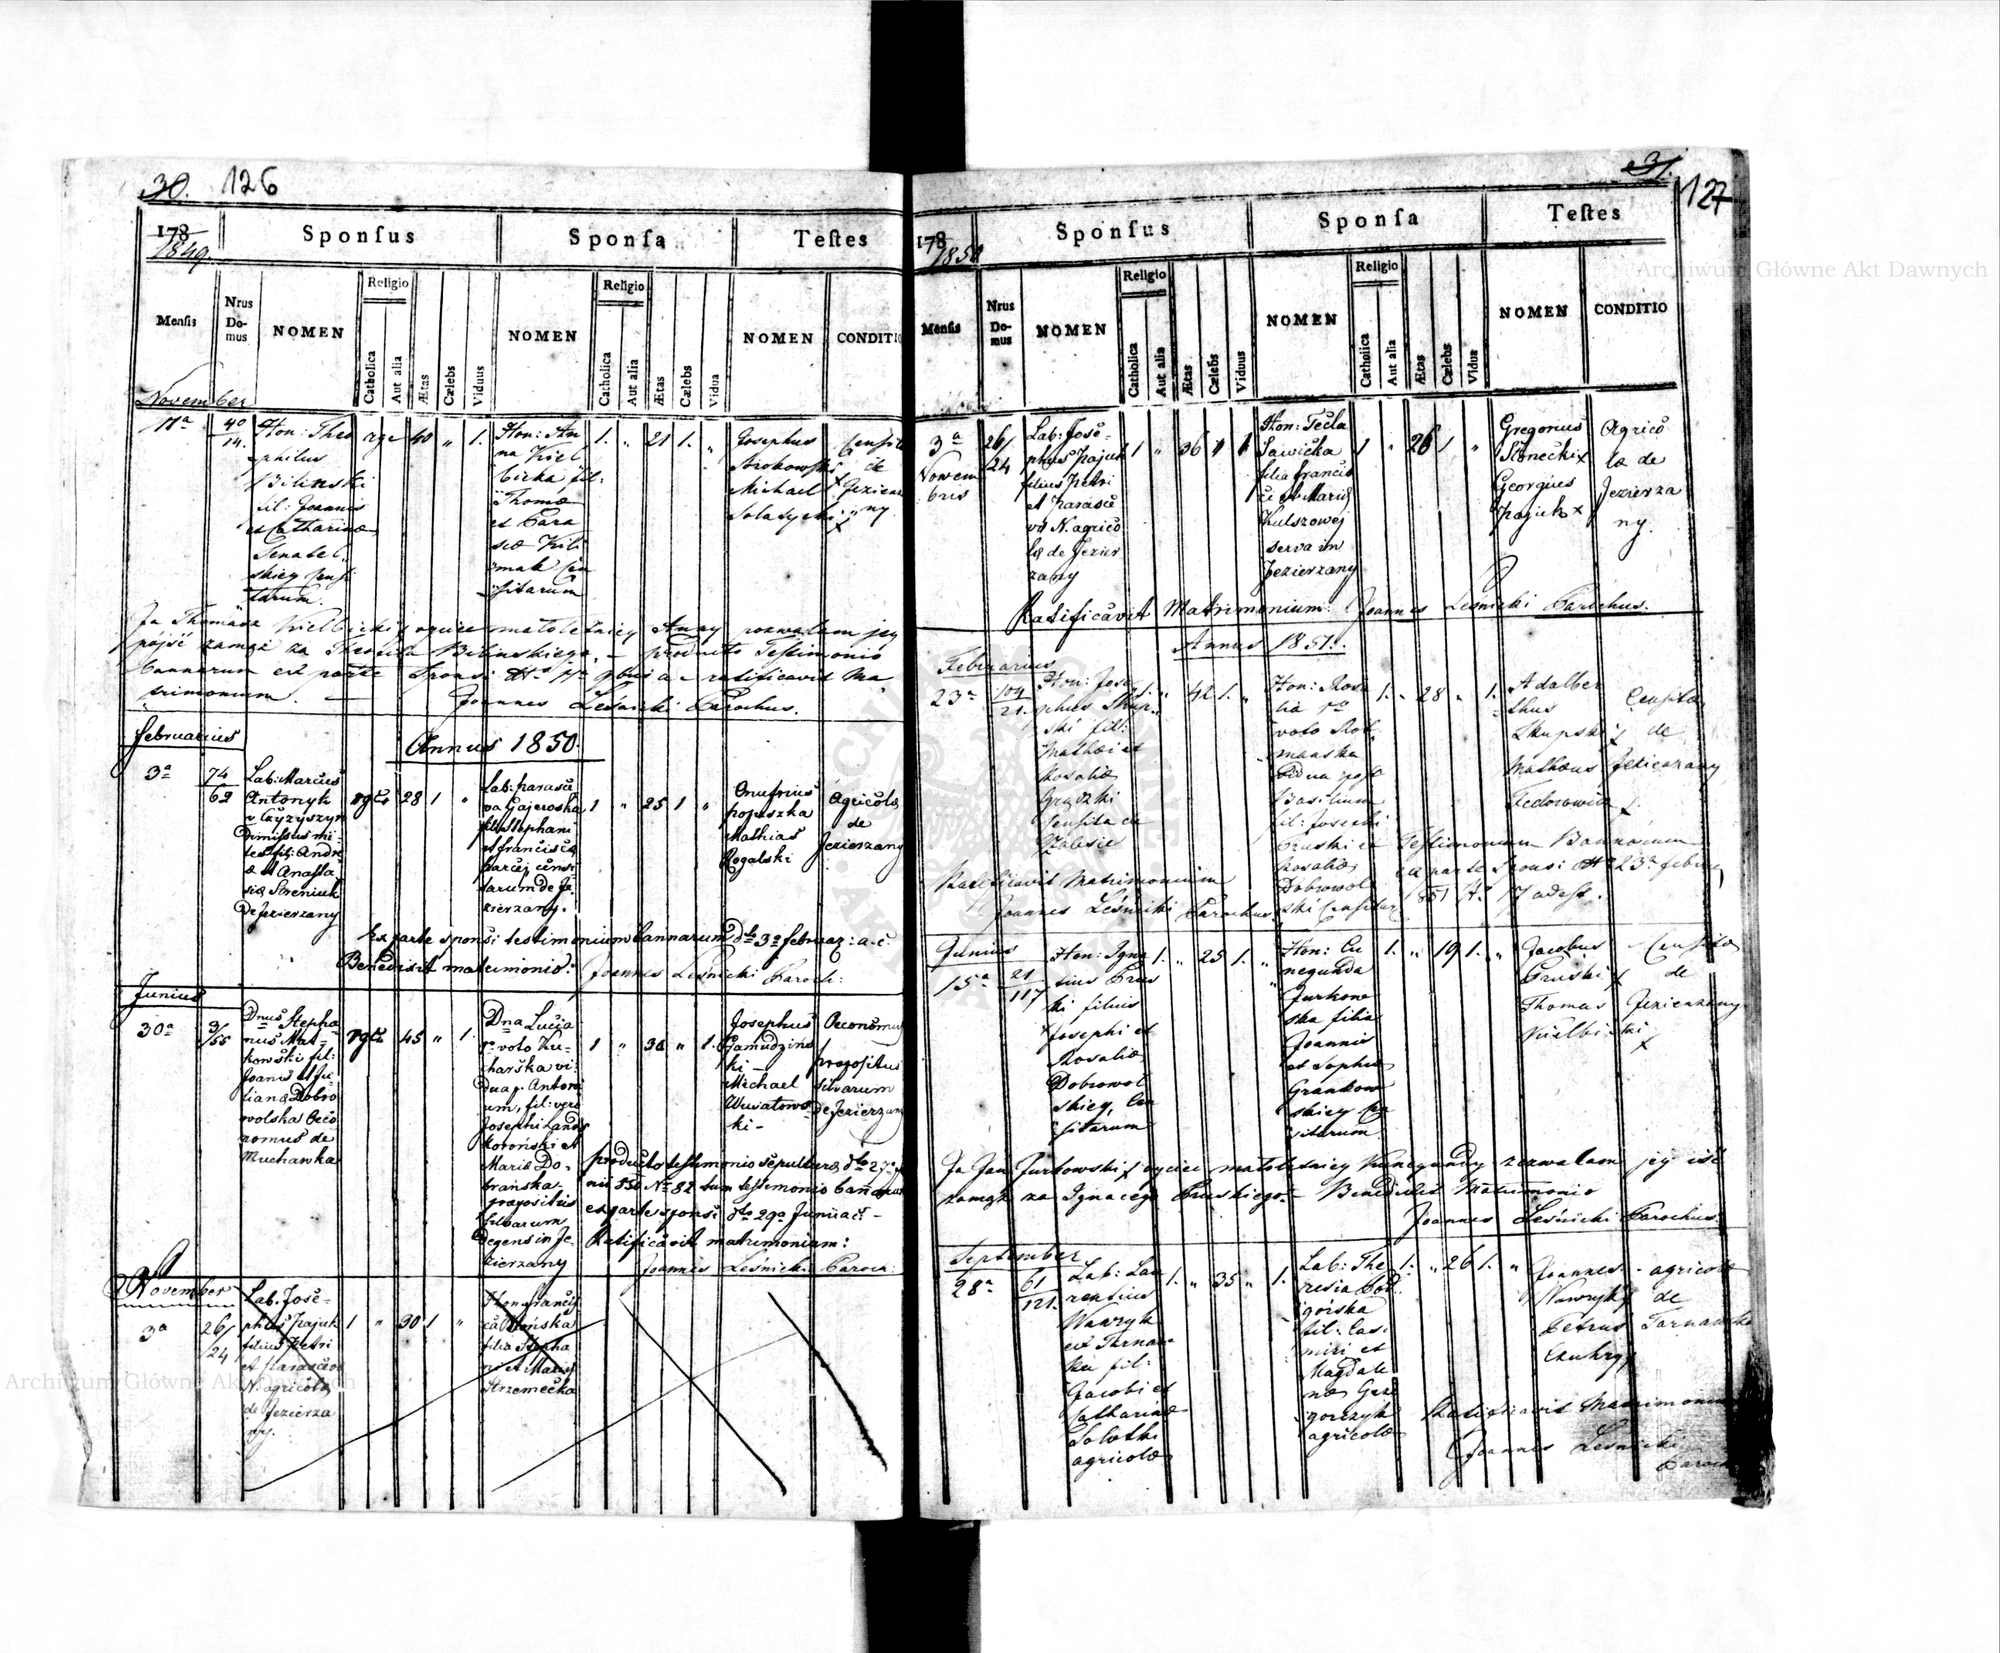 30. 126
178
1849
Sponſus
Sponſa
Teſtes
Religio
Religio
Menſis
Nrus Do-mus
NOMEN
Catholica
Aut alia
Ætas
Cælebs
Viduus
NOMEN
Catholica
Aut alia
Ætas
Cælebs
Vidua
NOMEN
CONDITI
November
11a
40
14.
Hon: Theo
philus
Bilinski
fil: Joannis
et Catharinæ
skiey Censi
tarum.
rgc 40 „ 1.
Hon: An
na Kiel
bicka fil:
Thomæ
et Para
sciæ Kili
mak Cen
sitarum
1. „ 21 1. „
Josephus
Michael
Censitæ
de
Jezierza
ny
Ja Thomasz Kielbicki oyciec małoletniey Anny pozwalam jey
pójść zamąż za Theofila Bilinskiego. — producto Testimonio
Bannorum ex parte Sponsi ratificavit Ma
trimonium. — Joannes Leśnicki Parochus.
februarius
Annus 1850.
3a
74
62
Lab: Marcus
Antonyk
v Czyzyszyn
Dimissus mi-
les fil: Andre
æ et Anasta
siæ Sereniuk
de Jezierzany
28 1 „
Lab: parasce
va Gajewska
filia Stephani
et franciscæ
tarum de Je-
zierzany.
1 „ 25 1 „
Onufrius
popuszka
Mathias
Rogalski
Agricolæ
de
Jezierzany
Ex parte sponsi testimonium bannorum dto 3a februar: a. c.
Benedixit matrimonio: Joannes Leśnicki Paroch:
Junius
30a
3/55
Dnus Stepha-
nus Mał-
kowski fil:
Joanis et Ju-
lianæ Dobro
wolska Oeco
nomus de
Muchawka
45 „ 1.
Dna Lucia
1o voto Ku-
charska vi-
dua p. Anton
um, fil: vero
Josephi Lands
koroński et
Mariæ Do-
brańska
præpositus
silvarum
degens in Je-
zierzany
1 „ 30 „ 1.
Josephus
ki —
Michael
ki —
Oeconomus
præpositus
silvarum
de Jezierzany
producto testimonio sepulturæ dto 27
nii 850 No 82 tum testimonio bannorum
ex parte sponsi dto 29a Junii
Ratificavit matrimonium:
Joannes Leśnicki Paroch:
November
3a
26/
24
Lab: Jose-
phus Pajuk
filius Petri
et parascevæ
N. agricolæ
de Jezierza
ny.
1 „ 30 1 „
Hon: francis
filia Stepha
ni et Mariæ
Strzemecka
31.
127
178
1850
Sponſus
Sponſa
Teſtes
Religio
Religio
Menſis
Nrus Do-mus
NOMEN
Catholica
Aut alia
Ætas
Cælebs
Viduus
NOMEN
Catholica
Aut alia
Ætas
Cælebs
Vidua
NOMEN
CONDITIO
3a
Novem
bris
26/
24
Lab: Jose-
phus Pajuk
filius Petri
et parasce
væ N. agrico
læ de Jezier
zany
1 „ 36
Hon: Tecla
Sawicka
filia francis
ci et Mariæ
Kulszowej
serva in
Jezierzany
1 „ 26 1 „
Gregorius
Słonecki x
Georgius
Pajuk x
Agrico
læ de
Jezierza
ny.
Ratificavit Matrimonium: Joannes Leśnicki Parochus.
Annus 1851.
Februarius
23a
109
21.
Hon: Jose
phus Skup
ski fil:
Mathæi et
Rosaliæ
Censitæ ex
Zalesie
1. „ 42 1. „
Hon: Rosa
lia 1o
voto Rot
manska
vidua post
Basilium
fil: Josephi
Pruski et
Rosaliæ
Dobrowol
ski Censitar
1. „ 28 „ 1.
Adalber
thus
Skupski
Mathæus
Fedorowicz
Censitæ
de
Jezierzany
Testimonium Bannorum
ex parte Sponsi dto 23a febru
851 No 17 adest.
Ratificavit Matrimonium
Joannes Leśnicki Parochus.
Junius
15a
21
117
Hon: Igna
tius Prus
ki filius
Josephi et
Rosaliæ
Dobrowol
skiey, Cen
sitarum
1. „ 25 1. „
Hon: Cu
negunda
Jurkow
ska filia
Joannis
et Sophiæ
Grankow
skiey Cen
sitarum
1. „ 19 1. „
Jacobus
Pruski
Thomas
Kielbicki
Censitæ
de
Jezierzany
Ja Jan Jurkowski oyciec małoletniey Kunegundy zezwalam jey iść
zamąż za Ignacego Pruskiego. — Benedixit Matrimonio
Joannes Leśnicki Parochus.
September
28a
61
121.
Lab: Lau
rentius
Wawryk
ex Tarnaw
ka fil:
Jacobi et
Catharinæ
Solotki
agricolæ
1. „ 35 „ 1.
Lab: The
resia Pod
górska
fil: Casi
miri et
Magdale
næ Grze
gorczyk
agricolæ
1. „ 26 1. „
Joannes
Wawryk
Petrus
agricolæ
de
Tarnawka
Ratificavit Matrimonium
Joannes Leśnicki
Paroch
Archiwum Główne Akt Dawnych
Archiwum Główne Akt Dawnych